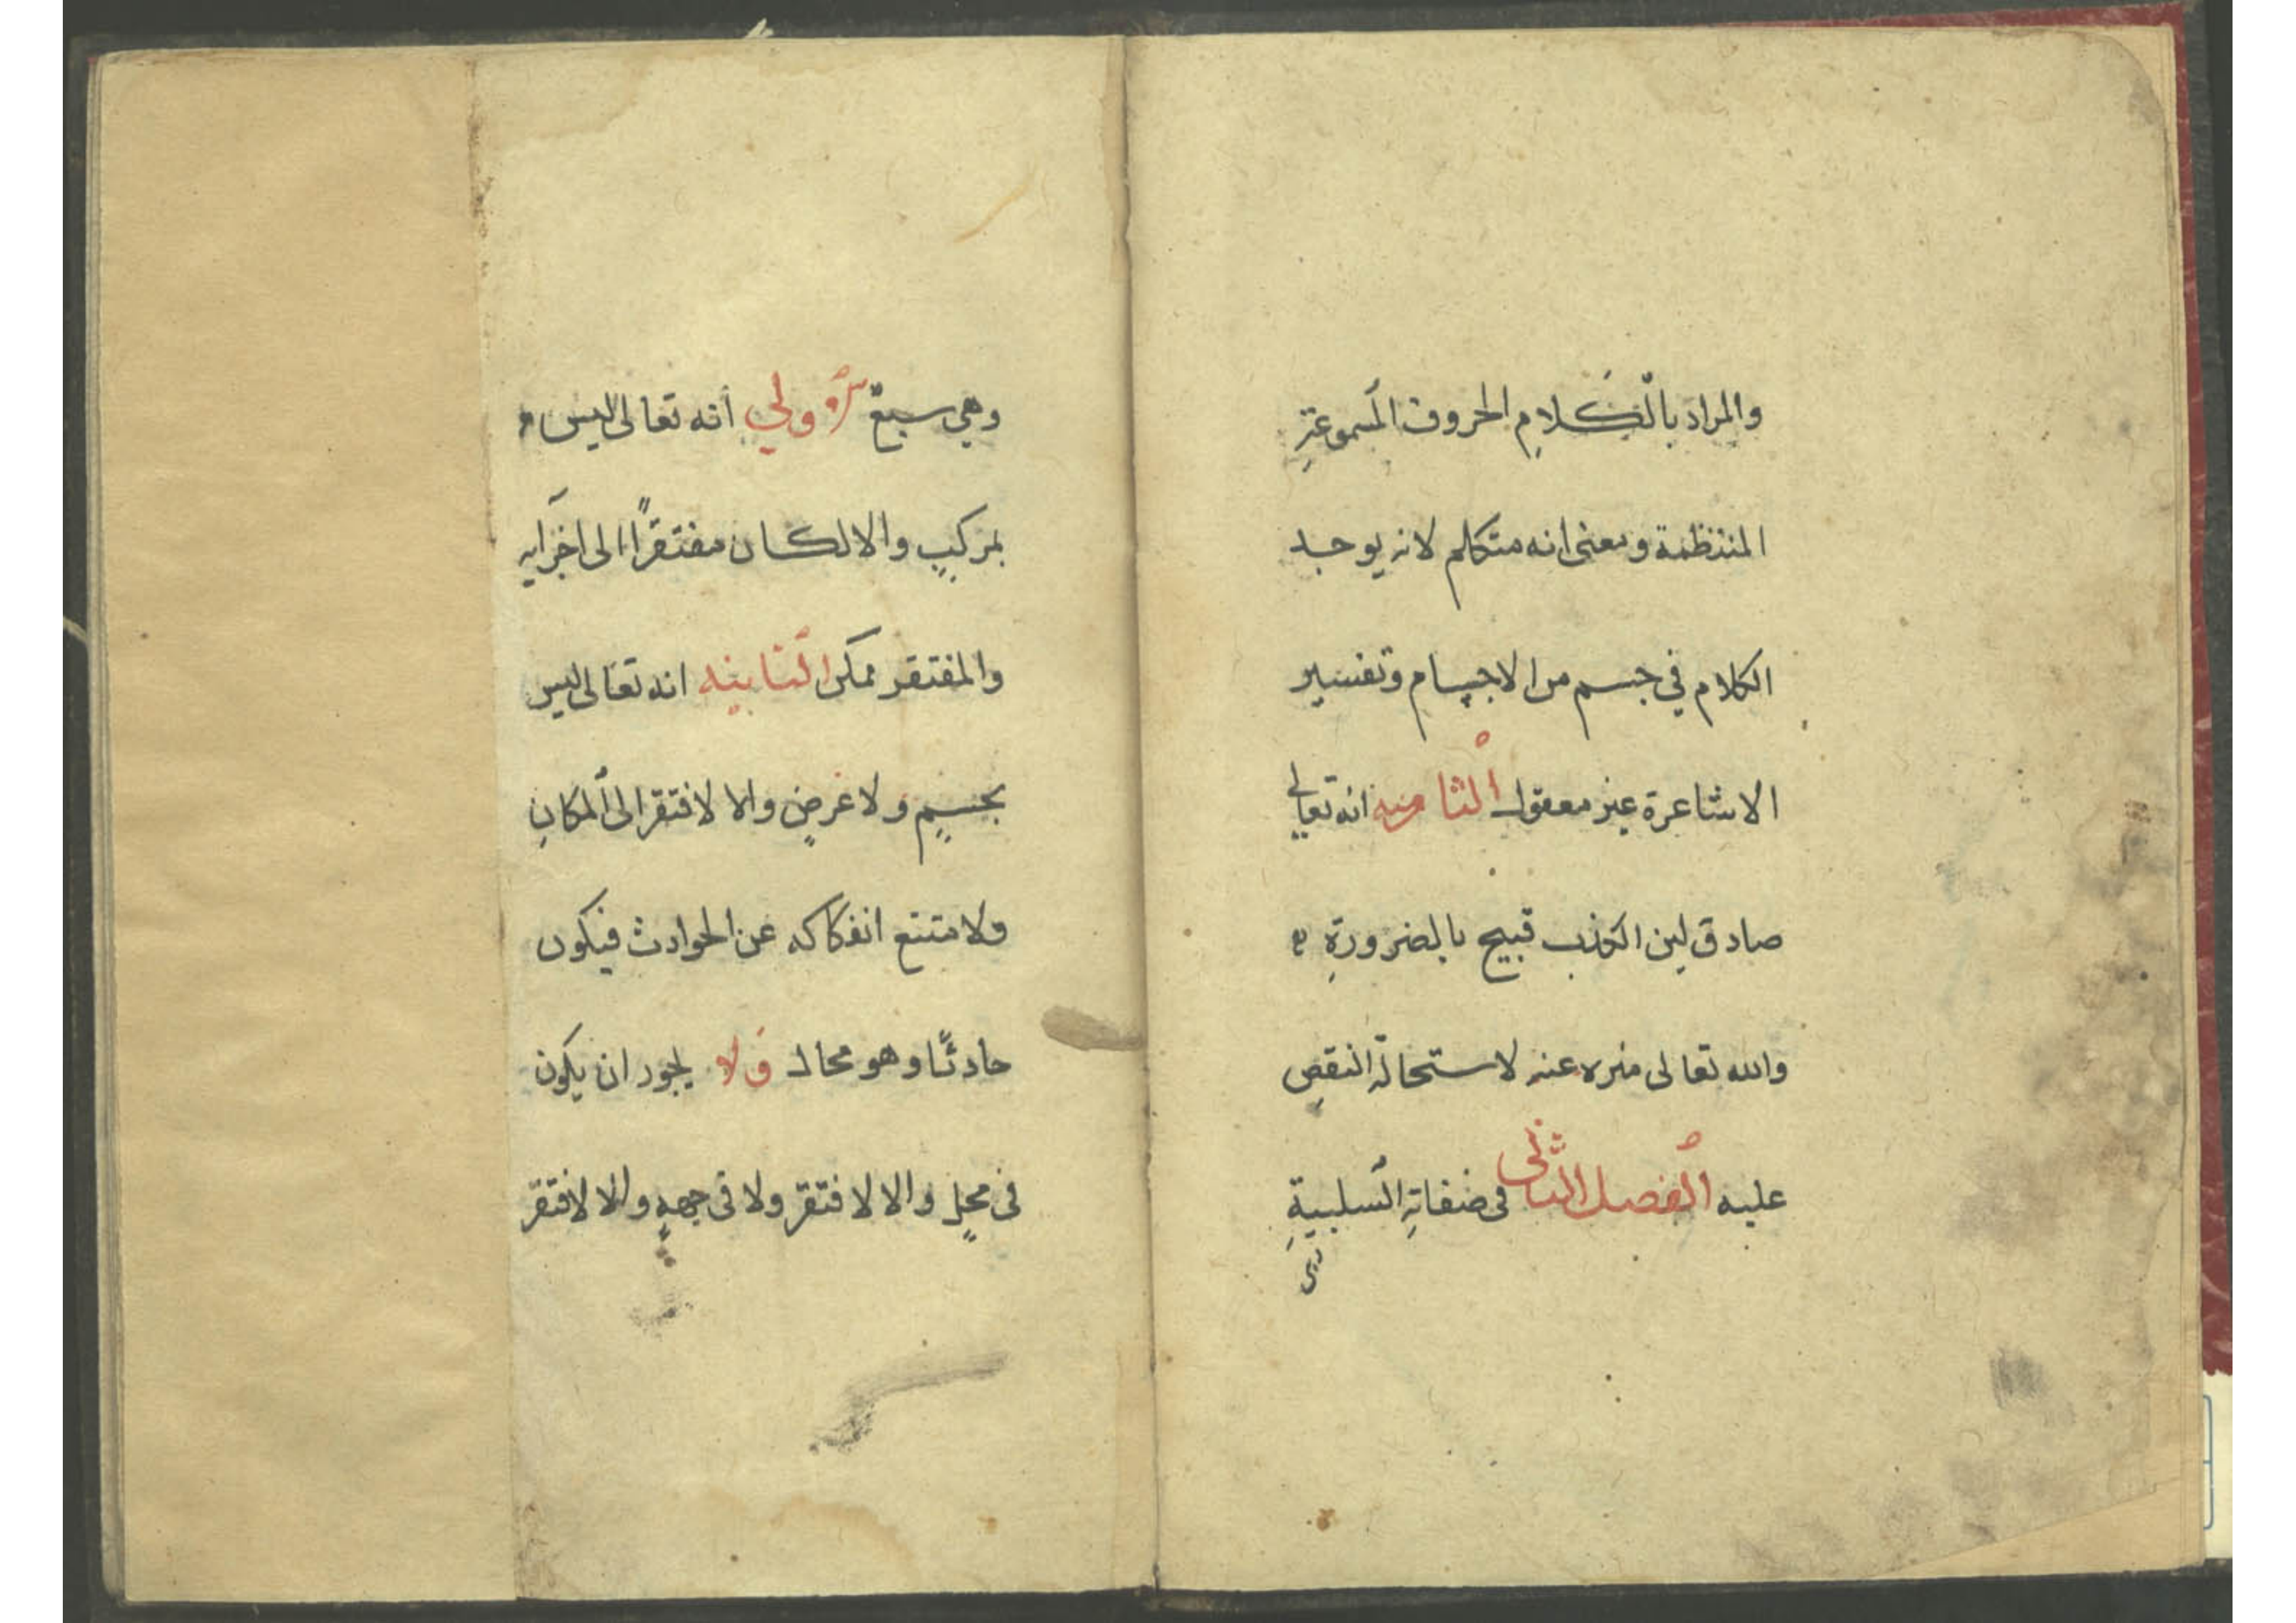 والمراد بالكلامِ الحروف المسموعةِ
المنتظمة ومعنى انه متكلم لانه يوجد
الكلام في جسم من الاجسام وتفسير
الاشاعرة غير معقول الثامنه انه تعالى
صادق لين الكذب قبيح بالضرورةِ
والله تعالى منزه عنه لاستحالة النقصِ
عليه الفصل الثانى فى صفاتهِ السلبيةِ
وهي سبعة الاولي أنه تعالى ليس
بمركبٍ والا لكان مفتقرًا الى اجزايه
والمفتقر ممكن الثانيه انه تعالى ليس
بجسمٍ ولا عرضٍ والا لافتقر الى المكانِ
ولامتنع انفكاكه عن الحوادث فيكون
حادثًا وهو محال ولا يجوز ان يكون
فى محلٍ والا لافتقر ولا فى جهةٍ والا لافتقر